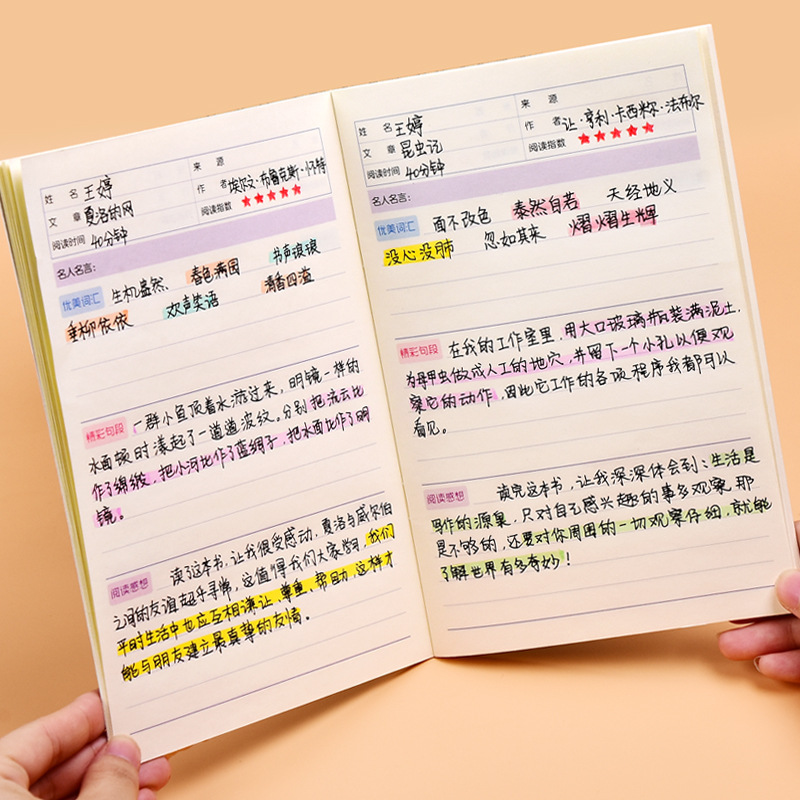 姓 名 王婷
来 源
文 章 夏洛的网
作 者 埃尔文·布鲁克斯·怀特
阅读时间 40分钟
阅读指数 ★★★★★
名人名言:
优美词汇 生机盎然、 春色满园 书声琅琅
垂柳依依 欢声笑语 清香四溢
精彩句段 一群小鱼顶着水游过来,明镜一样的
水面顿时漾起了一道道波纹。分别把流云比
作了绵缎,把小河比作了蓝绸子,把水面比作了明
镜。
阅读感想 读了这本书,让我很受感动,夏洛与威尔伯
之间的友谊超乎寻常,这值得我们大家学习,我们
平时生活中也应互相谦让、尊重、帮助,这样才
能与朋友建立最真尊的友情。
姓 名 王婷
来 源
文 章 昆虫记
作 者 让·亨利·卡西米尔·法布尔
阅读时间 40分钟
阅读指数 ★★★★★
名人名言:
优美词汇 面不改色 泰然自若 天经地义
没心没肺 忽如其来 熠熠生辉
精彩句段 在我的工作室里,用大口玻璃瓶装满泥土,
为母甲虫做成人工的地穴,并留下一个小孔以便观
察它的动作,因此它工作的各项程序我都可以
看见。
阅读感想 读完这本书,让我深深体会到:生活是
写作的源泉,只对自己感兴趣的事多观察,那
是不够的,还要对你周围的一切观察仔细,就能
了解世界有多奇妙!